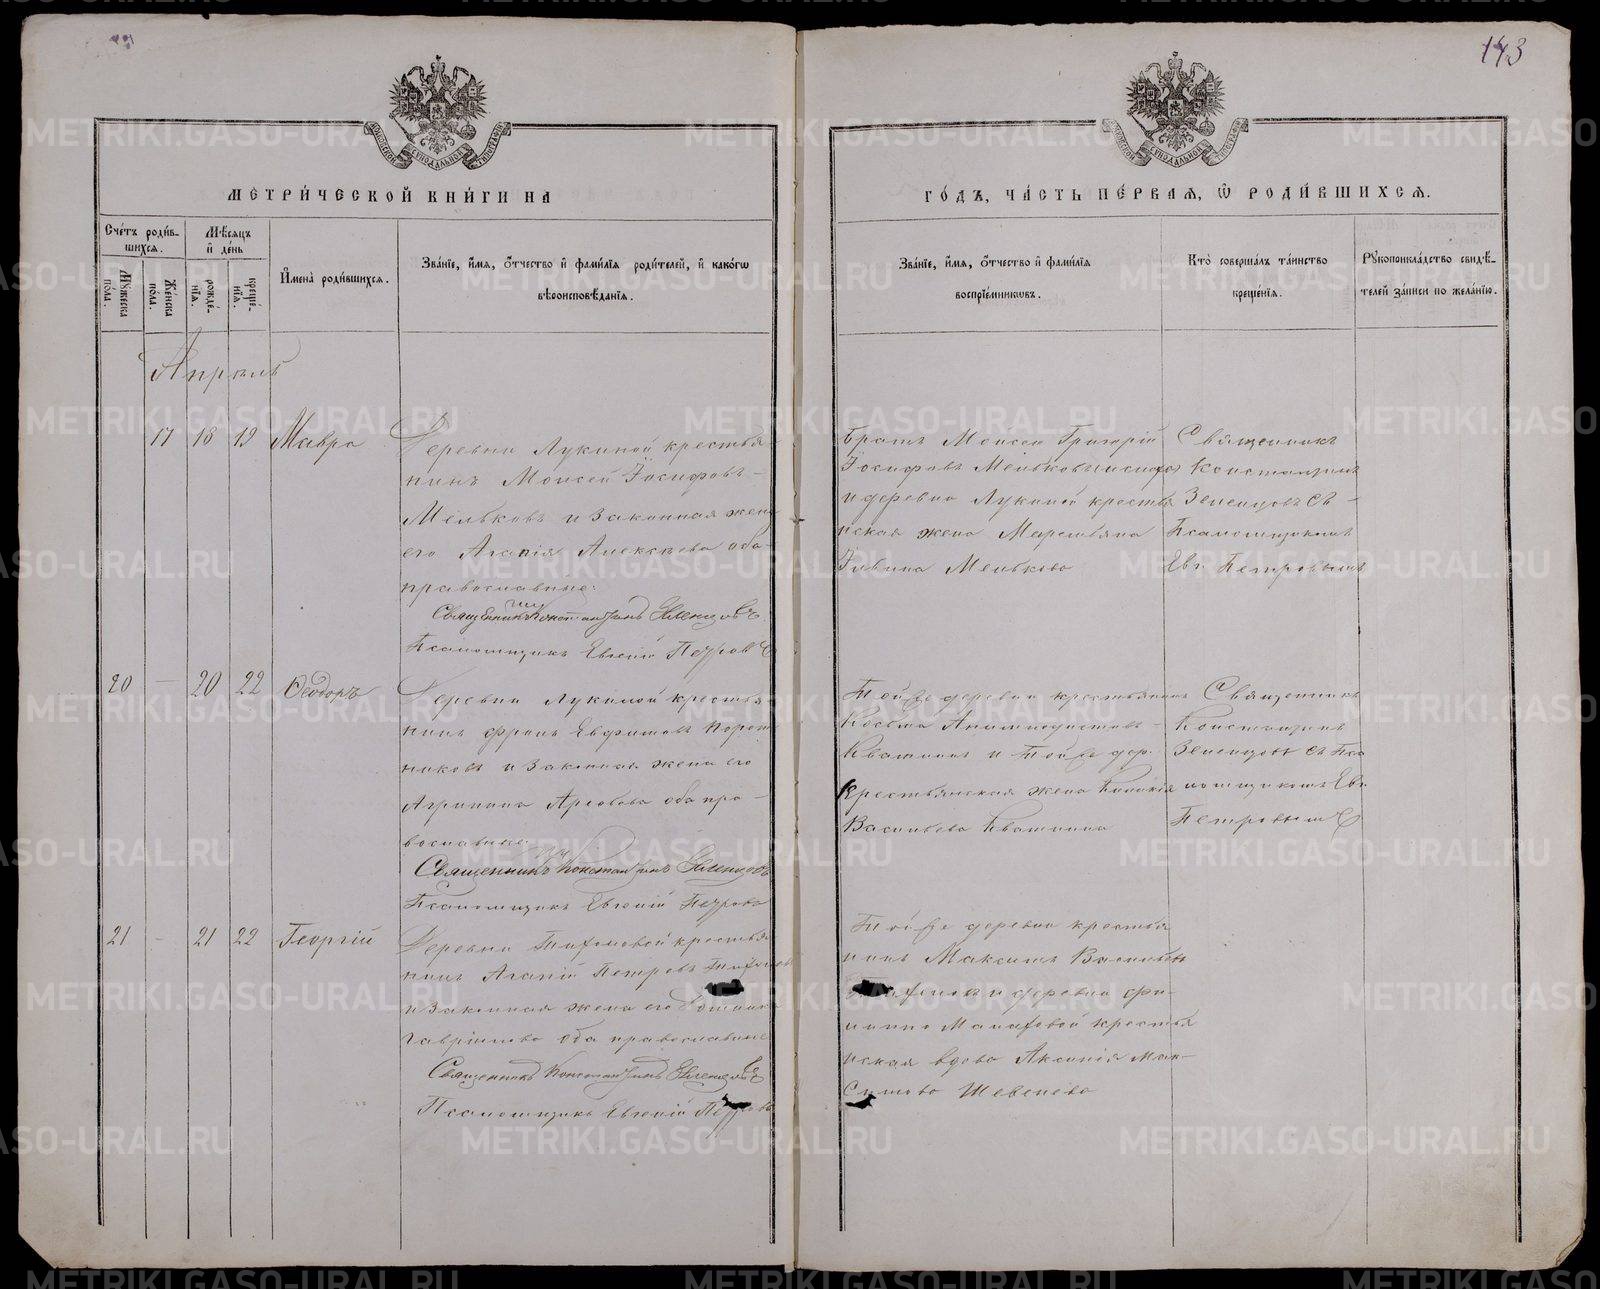 143
МЕТРИ́ЧЕСКОЙ КНИ́ГИ НА
ГО́ДЪ, ЧА́СТЬ ПЕ́РВАЯ, Ѿ РОДИ́ВШИХСЯ.
Сче́тъ роди́вшихся.
Мѣ́сяцъ и́ де́нь
Му́жеска по́ла.
Же́нска по́ла.
рожде́нїя.
креще́нїя.
И҆мена̀ роди́вшихся.
Зва́нїе, и҆́мя, ѻ҆́тчество и҆ фами́лїя роди́телей, и҆ како́гѡ
вѣроисповѣ́данїя.
Зва́нїе, и҆́мя, ѻ҆́тчество и҆ фами́лїя
воспрїе́мникѡвъ.
Кто̀ соверша́лъ та́инство
креще́нїя.
Рукоприкла́дство свидѣ́-
телей за́писи по жела́нїю.
Апрѣль
17 18 19 Мавра
Деревни Лукиной крестья
нинъ Моисей Іосифовъ
Мельковъ и законная жена
его Агапія Алексѣева оба
православные.
Священникъ Константинъ Зеленцовъ
Псаломщикъ Евгеній Петровъ
Братъ Моисея Григорій
Іосифовъ Мельковъ
и деревни Лукиной крестья
нская жена Марѳмьяна
Мелькова
Священникъ
Константинъ
Зеленцовъ съ
Псаломщикомъ
Евг. Петровымъ
20 — 20 22 Ѳеодоръ
Деревни Лукиной крестья
нинъ
и законная жена его
Агрипина оба пра-
вославные.
Священникъ Константинъ Зеленцовъ
Псаломщикъ Евгеній Петровъ
Той же деревни крестьянинъ
Косьма
Квашнинъ и той же дер.
крестьянская жена
Васильева Квашнина
Священникъ
Константинъ
Зеленцовъ съ Пса
ломщикомъ Евг.
Петровымъ
21 — 21 22 Георгій
Деревни крестья
нинъ Агапій Петровъ
и законная жена его
Гавріилова оба православные
Священникъ Константинъ Зеленцовъ
Псаломщикъ Евгеній Петровъ
Той же деревни крестья
нинъ Максимъ Васильевъ
и деревни
крестья
нская вдова Аксинія Мак-
симова
METRIKI.GASO-URAL.RU